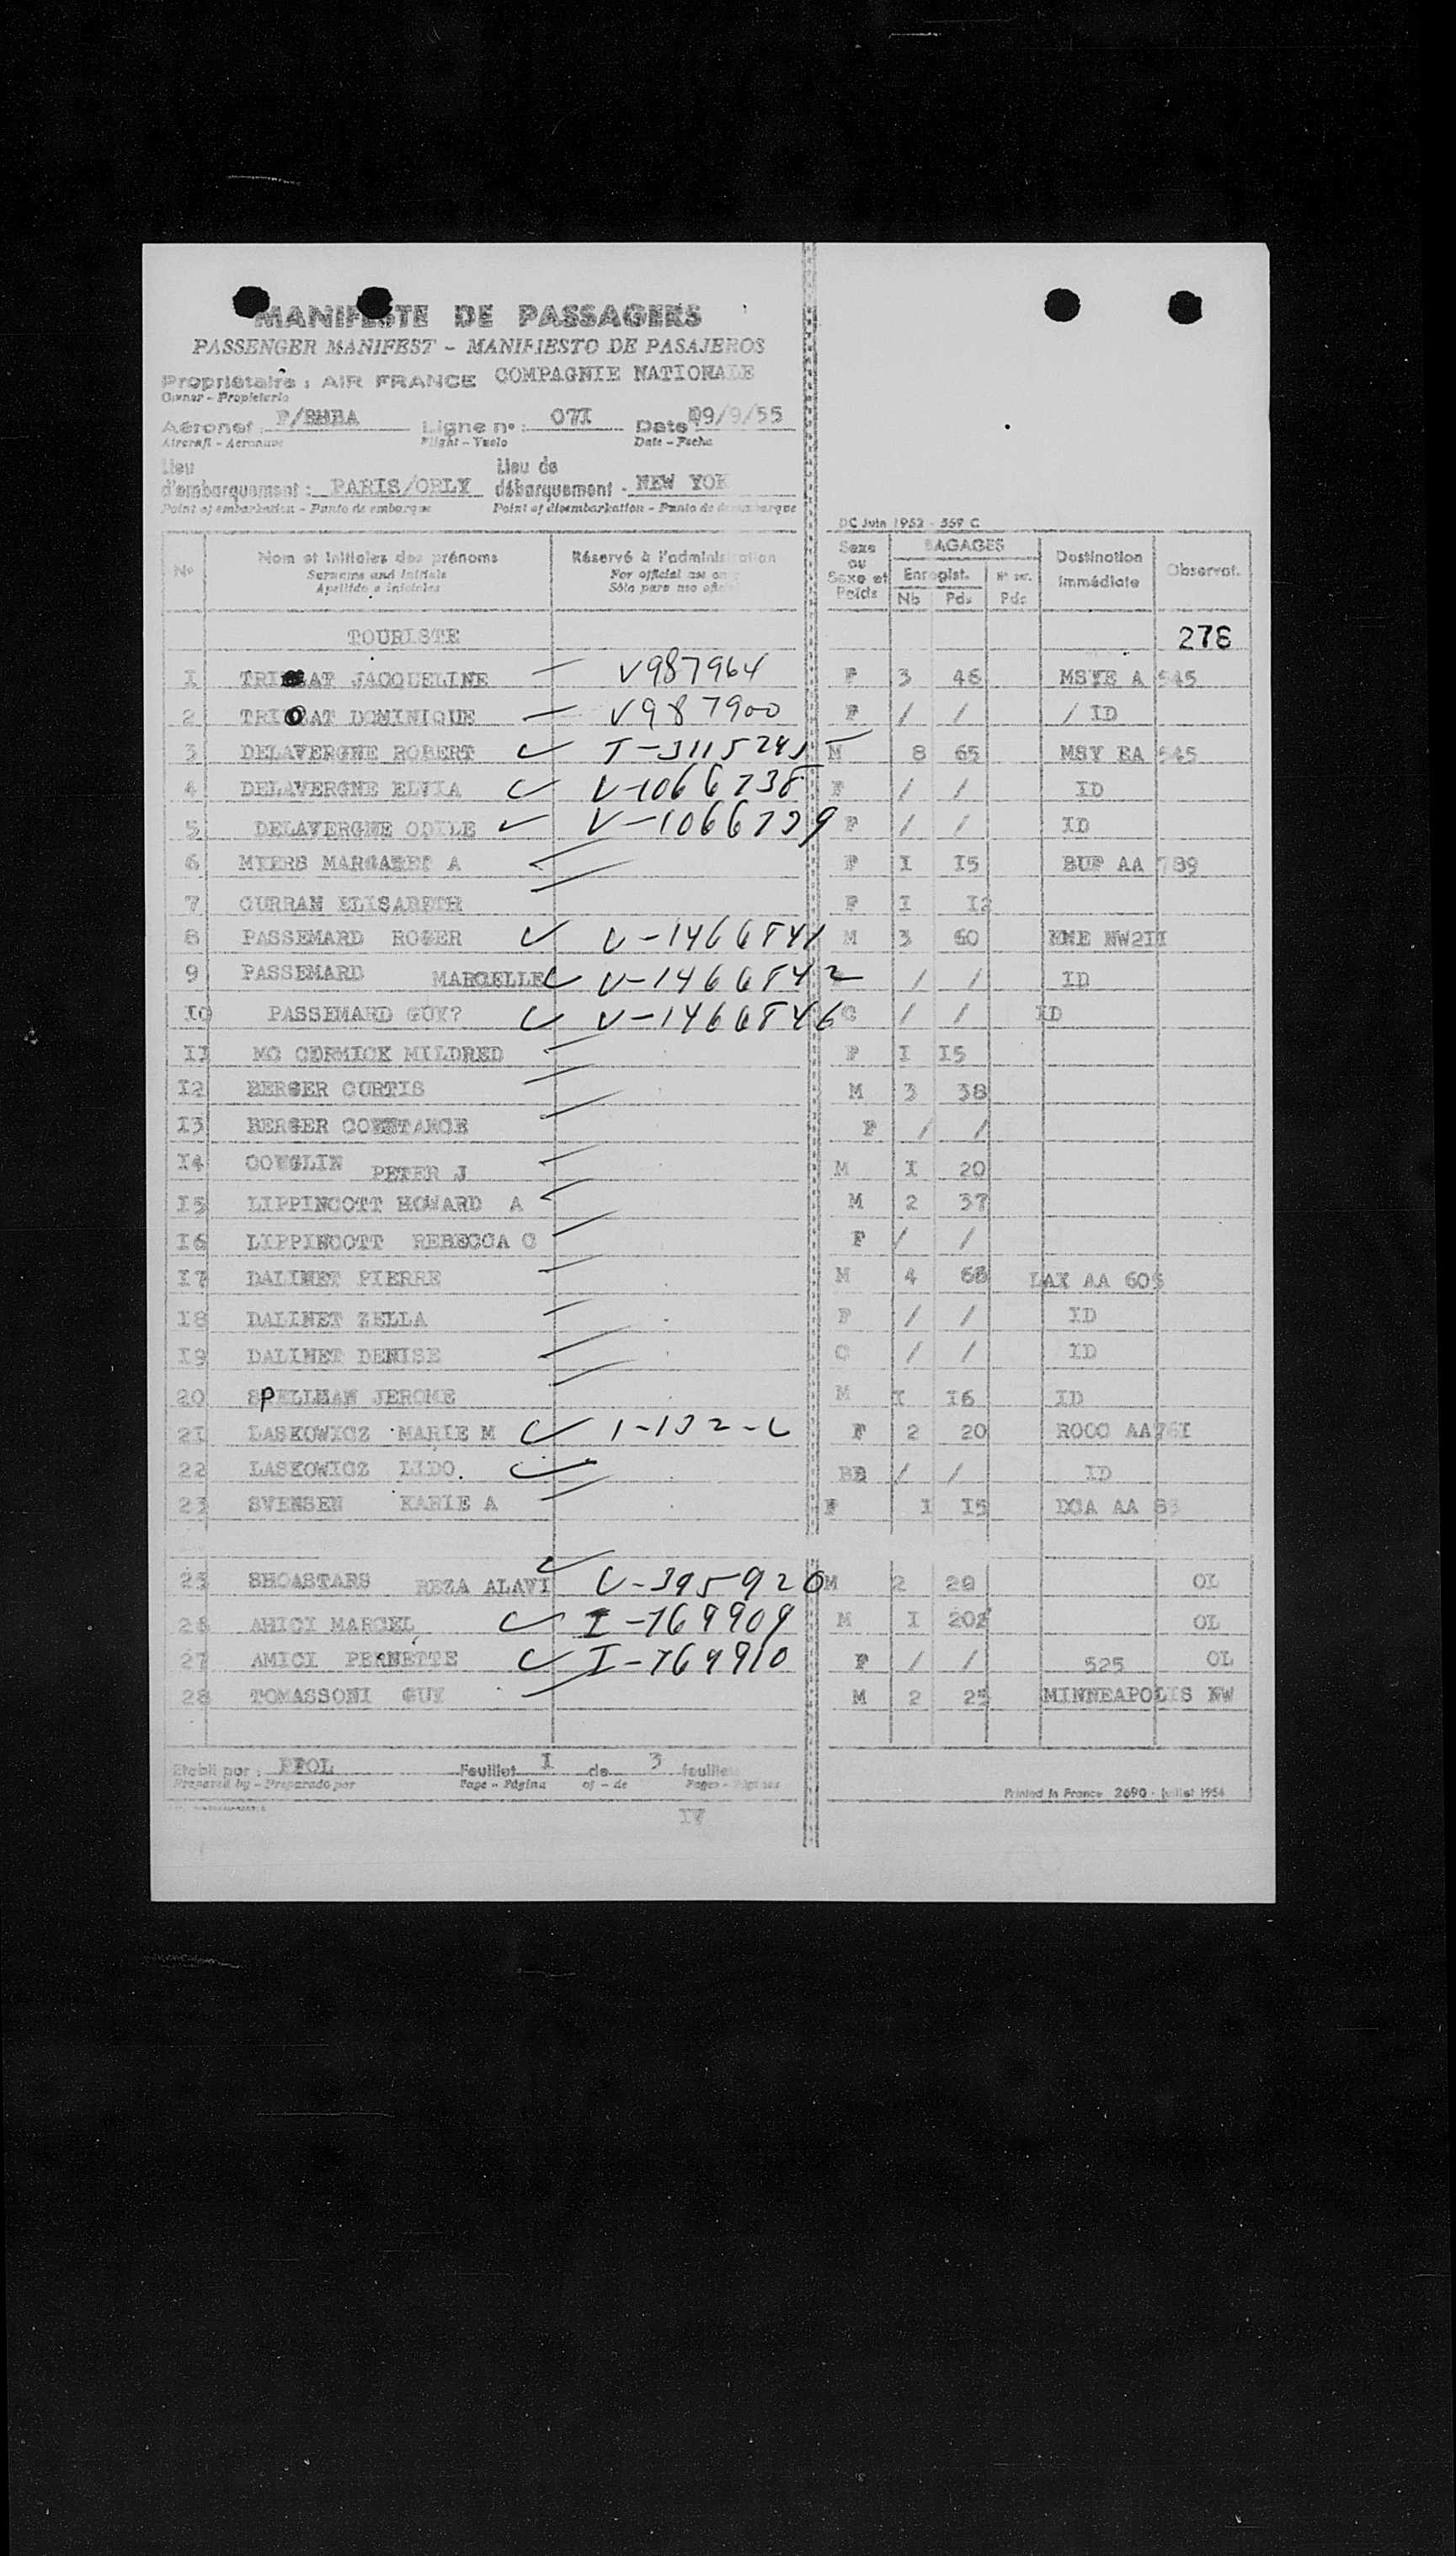 MANIFESTE DE PASSAGERS
PASSENGER MANIFEST - MANIFIESTO DE PASAJEROS
Propriétaire : AIR FRANCE COMPAGNIE NATIONALE
Owner - Propietario
Aéronef : F/BHBA Ligne n° : 07I Date 09/9/55
Aircraft - Aeronave Flight - Vuelo Date - Fecha
Lieu d'embarquement : PARIS/ORLY Lieu de débarquement - NEW YOR
Point of embarkation - Punto de embarque Point of disembarkation - Punto de desembarque
DC Juin 1952 - 559 C
N° Nom et initiales des prénoms Réservé à l'administration Sexe ou Sexe et Poids BAGAGES Destination immédiate Observat.
Surname and initials For official use only Enregist. N°
Apellido e iniciales Sólo para uso oficial Nb Pds Pds
TOURISTE 278
1 TRI AT JACQUELINE V987964 F 3 46 MSYE A 545
2 TRI AT DOMINIQUE V987900 F / / / ID
3 DELAVERGNE ROBERT M 8 65 MSY EA 545
4 DELAVERGNE ELVIA V-1066738 F / / ID
5 DELAVERGNE ODILE V-1066739 F / / ID
6 MYERS MARGARET A F I I5 BUF AA 789
7 CURRAN ELISABETH F I I2
8 PASSEMARD ROGER V-1466841 M 3 60 NW2II
9 PASSEMARD MARCELLE V-1466842 / / ID
I0 PASSEMARD GUY? V-1466846 C / / ID
II MC CORMICK MILDRED F I I5
I2 BERGER CURTIS M 3 38
I3 BERGER CONSTANCE F / /
I4 PETER J M I 20
I5 LIPPINCOTT HOWARD A M 2 37
I6 LIPPINCOTT REBECCA C F / /
I7 DALINET PIERRE M 4 68 LAX AA 605
I8 DALINET ZELLA F / / ID
I9 DALINET DENISE C / / ID
20 SPELLMAN JEROME M I I6 ID
2I LASKOWICZ MARIE M F 2 20 ROCO AA76I
22 LASKOWICZ LIDO. BB / / ID
23 SVENSEN KARIE A F I I5 DCA AA 83
25 SHOASTARS REZA ALAVI V-395920 M 2 20 OL
26 AMICI MARCEL I-769909 M I 20 OL
27 AMICI PERNETTE I-769910 F / / 525 OL
28 TOMASSONI GUY M 2 25 MINNEAPOLIS NW
Etabli par : PFOL Feuillet I de 3 feuillets
Prepared by - Preparado por Page - Página of - de Pages - Páginas
Printed in France 2690 - juillet 1954
IV